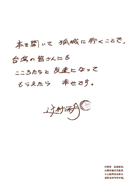 本を開いて 孤城に行くことで、
台湾の皆さんにも
こころたちと友達になって
もらえたら 幸せです。
辻村深月